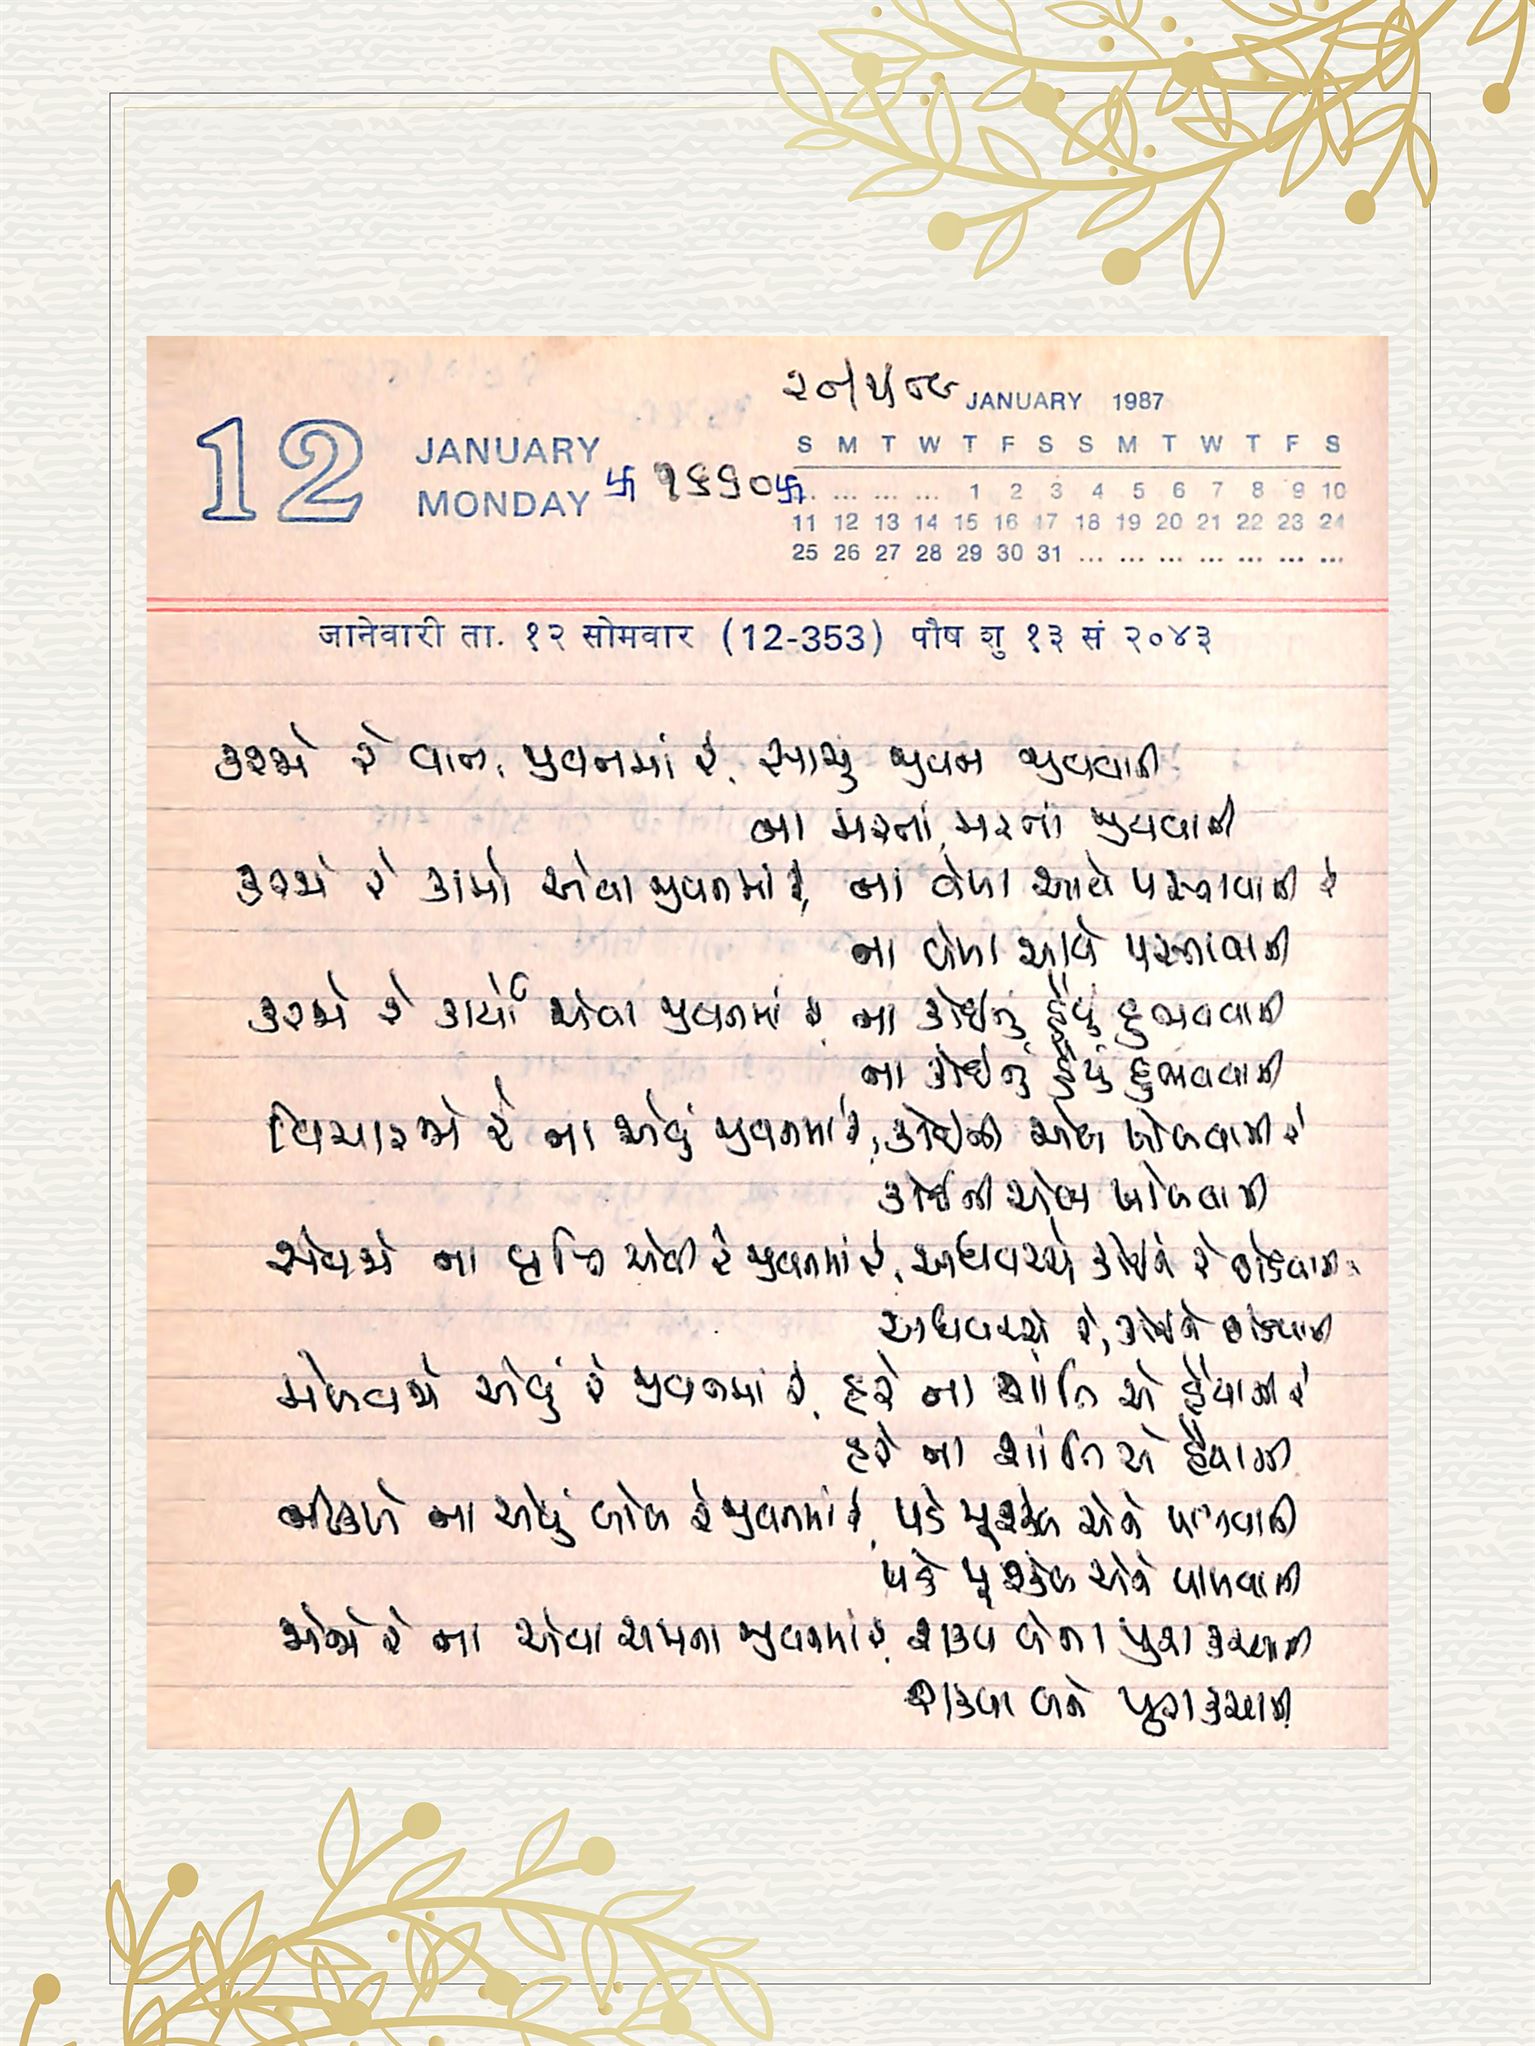 ૨૦/૧/૮૯
JANUARY 1987
12 JANUARY
MONDAY 卐 ૧૬૬૦ 卐
S M T W T F S S M T W T F S
.. ... ... ... 1 2 3 4 5 6 7 8 9 10
11 12 13 14 15 16 17 18 19 20 21 22 23 24
25 26 27 28 29 30 31 ... ... ... ... ... ... ...
जानेवारी ता. १२ सोमवार (12-353) पौष शु १३ सं २०४३
કરજે રે વાત, જીવનમાં રે, સાચું જીવન જીવવાની
ના મરતાં મરતાં જીવવાની
કરજે રે કામો એવા જીવનમાં રે, ના વેળા આવે પસ્તાવાની રે
ના વેળા આવે પસ્તાવાની
કરજે રે કાર્યો એવા જીવનમાં રે, ના કોઈનું હૈયું દુભવવાની
ના કોઈનું હૈયું દુભવવાની
વિચારજે રે ના એવું જીવનમાં રે, કોઈની એબ ખોલવાની રે
કોઈની એબ ખોલવાની
સેવજે ના વૃત્તિ એવી રે જીવનમાં રે, અધવચ્ચે કોઈને રે છોડવાની
અધવચ્ચે રે, કોઈને છોડવાની
મેળવજે એવું રે જીવનમાં રે, હરે ના શાંતિ એ હૈયાની રે
હરે ના શાંતિ એ હૈયાની
નીકળે ના એવું બોલ રે જીવનમાં રે, પડે મુશ્કેલ એને પાળવાની
પડે મુશ્કેલ એને પાળવાની
જોજે રે ના એવા સપના જીવનમાં રે, પુરા કરવાની
પુરા કરવાની